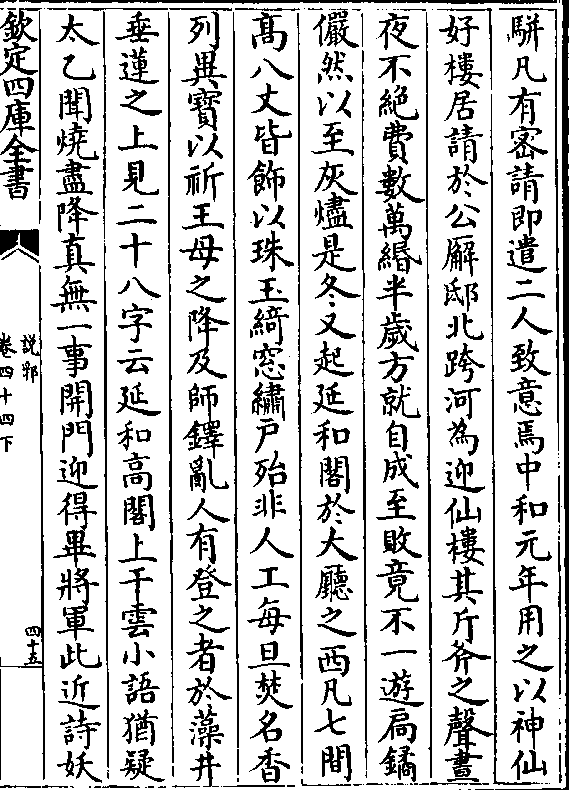 駢凡有密請即遣二人致意焉中和元年用之以神仙
好樓居請於公廨邸北跨河為迎仙樓其斤斧之聲晝
夜不絶費數萬緡半歲方就自成至敗竟不一遊扄鐍
儼然以至灰燼是冬又起延和閣於大廳之西凡七間
髙八丈皆飾以珠玉綺窓繡戶殆非人工每旦焚名香
列異寶以祈王母之降及師鐸亂人有登之者於藻井
垂蓮之上見二十八字云延和高閣上干雲小語猶疑
太乙聞燒盡降真無一事開門迎得畢將軍此近詩妖
欽定四庫全書
說郛
卷四十四下
四十五